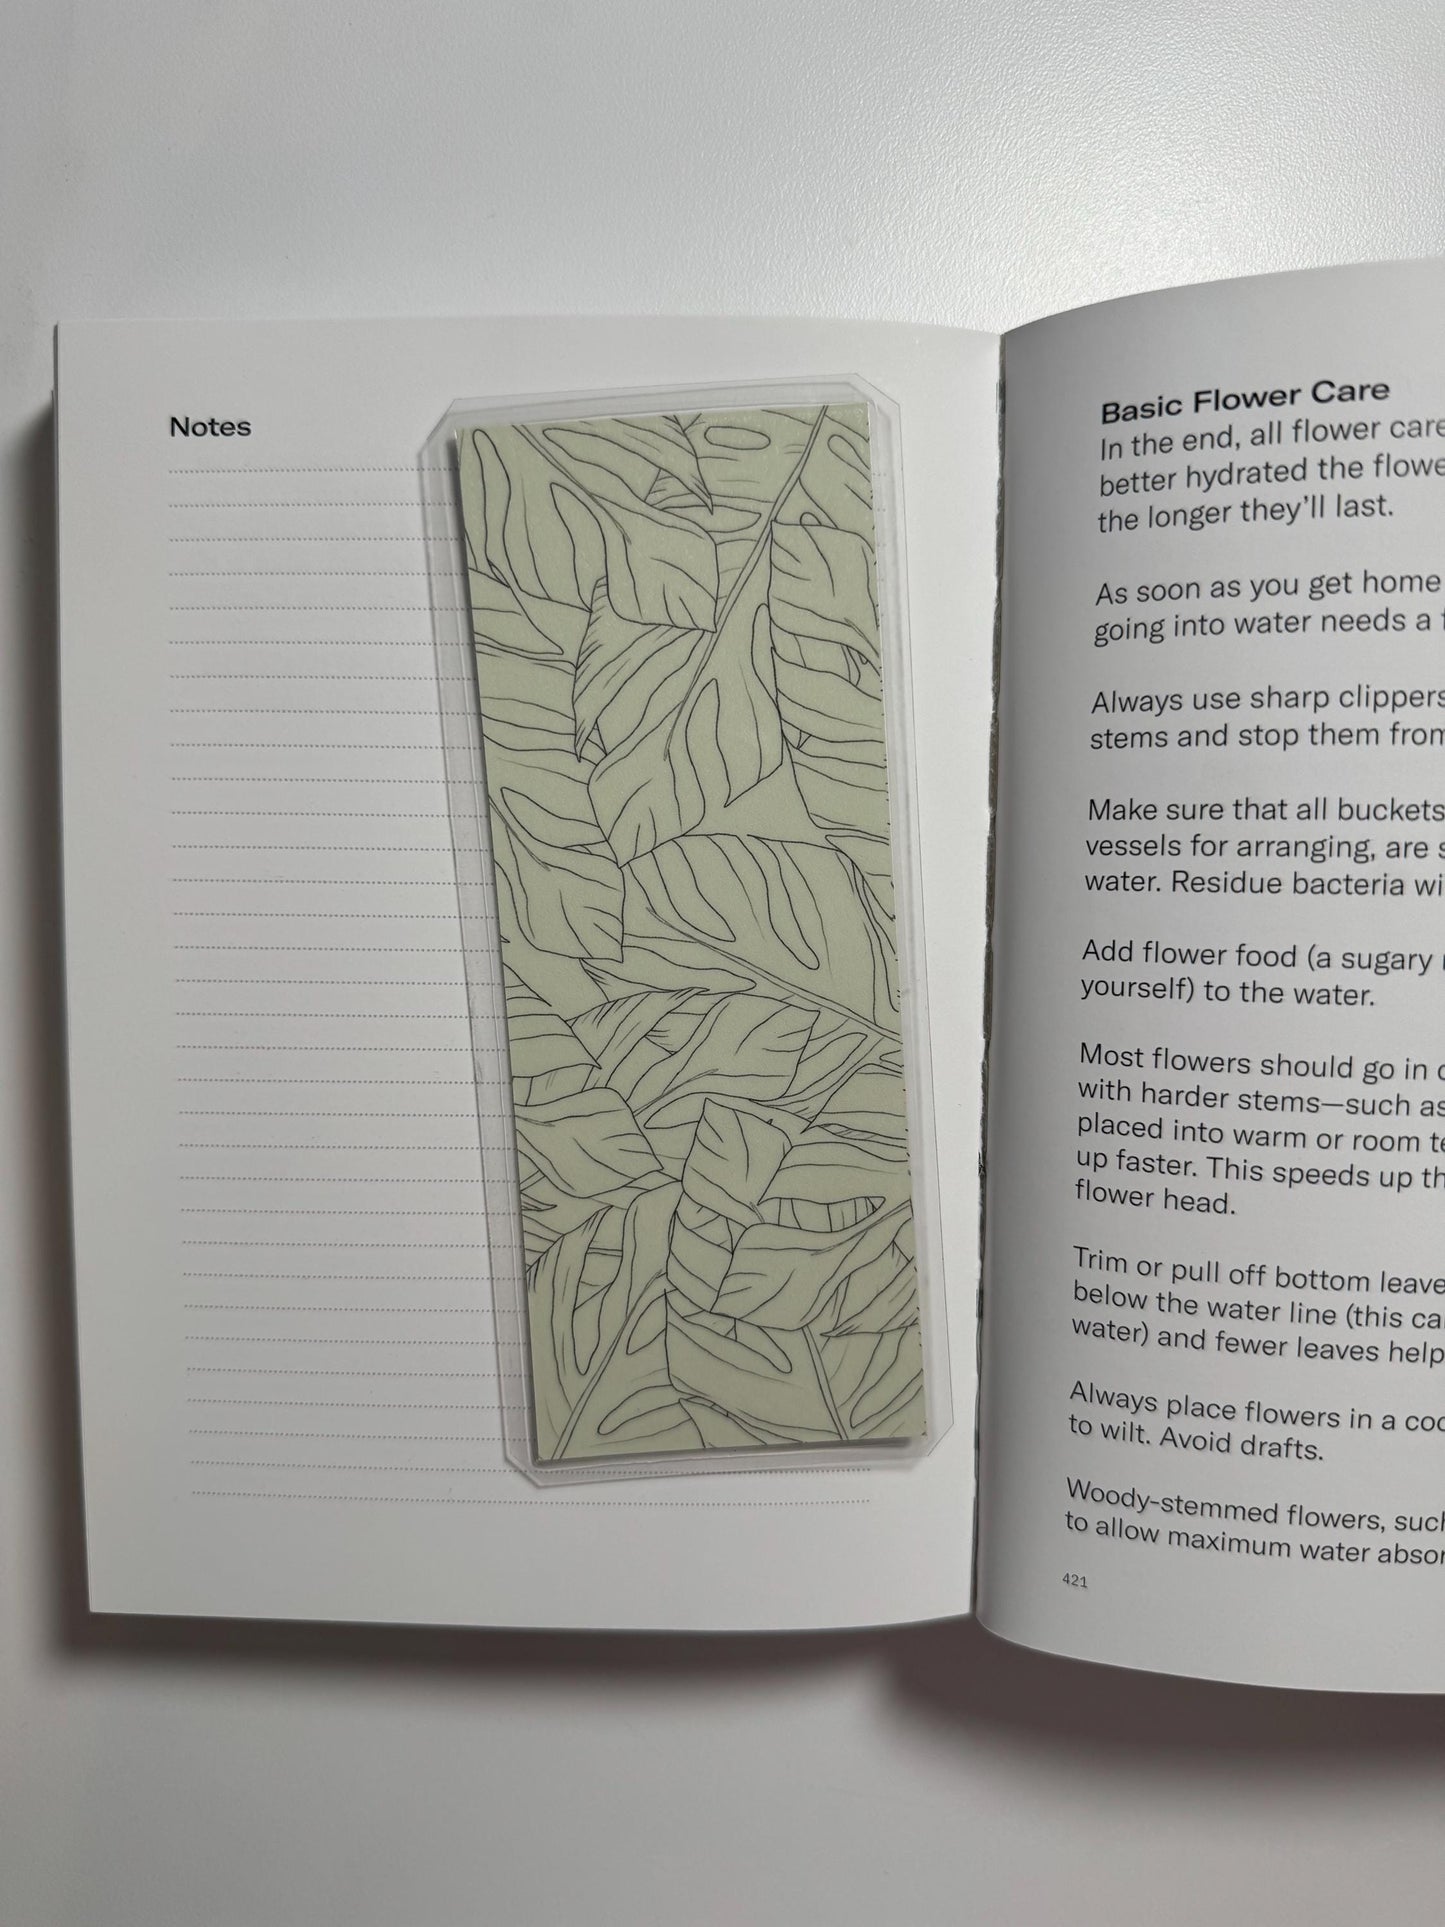 Notes
Basic Flower Care
In the end, all flower care
better hydrated the flowe
the longer they'll last.
As soon as you get home
going into water needs a
Always use sharp clippers
stems and stop them from
Make sure that all buckets
vessels for arranging, are s
water. Residue bacteria wi
Add flower food (a sugary
yourself) to the water.
Most flowers should go in c
with harder stems—such as
placed into warm or room te
up faster. This speeds up th
flower head.
Trim or pull off bottom leave
below the water line (this ca
water) and fewer leaves help
Always place flowers in a coo
to wilt. Avoid drafts.
Woody-stemmed flowers, such
to allow maximum water absor
421